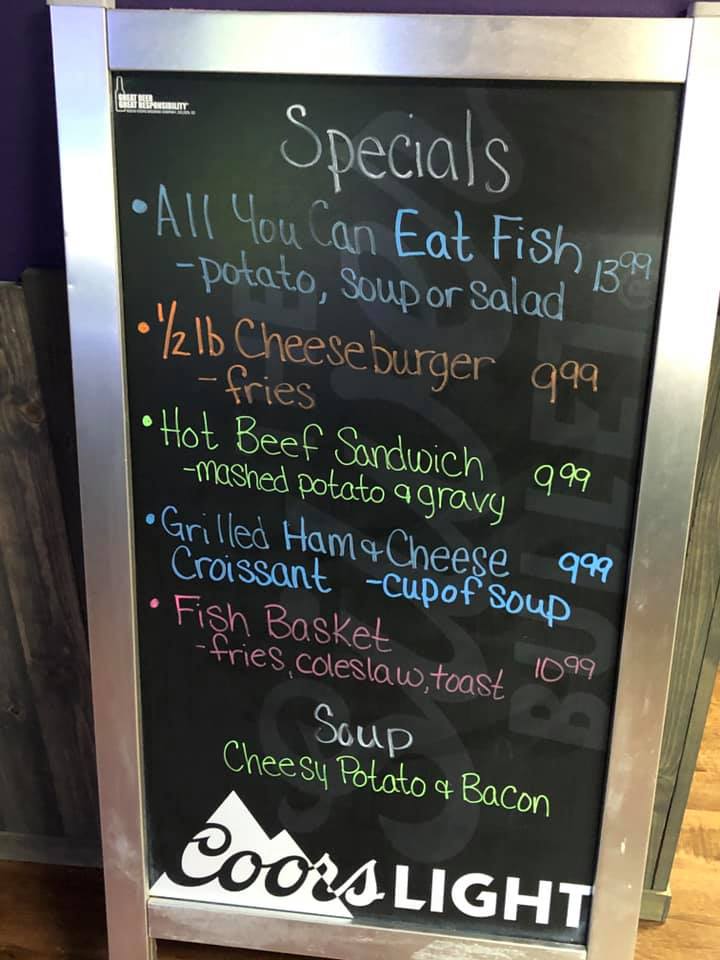 GREAT BEER
GREAT RESPONSIBILITY
Specials
•All You Can Eat Fish 13 99
-potato, soup or salad
•1/2 lb Cheeseburger 9 99
-fries
•Hot Beef Sandwich 9 99
-mashed potato & gravy
•Grilled Ham & Cheese 9 99
Croissant -cup of soup
•Fish Basket
-fries, coleslaw, toast 10 99
Soup
Cheesy Potato & Bacon
Coors LIGHT
BULLET